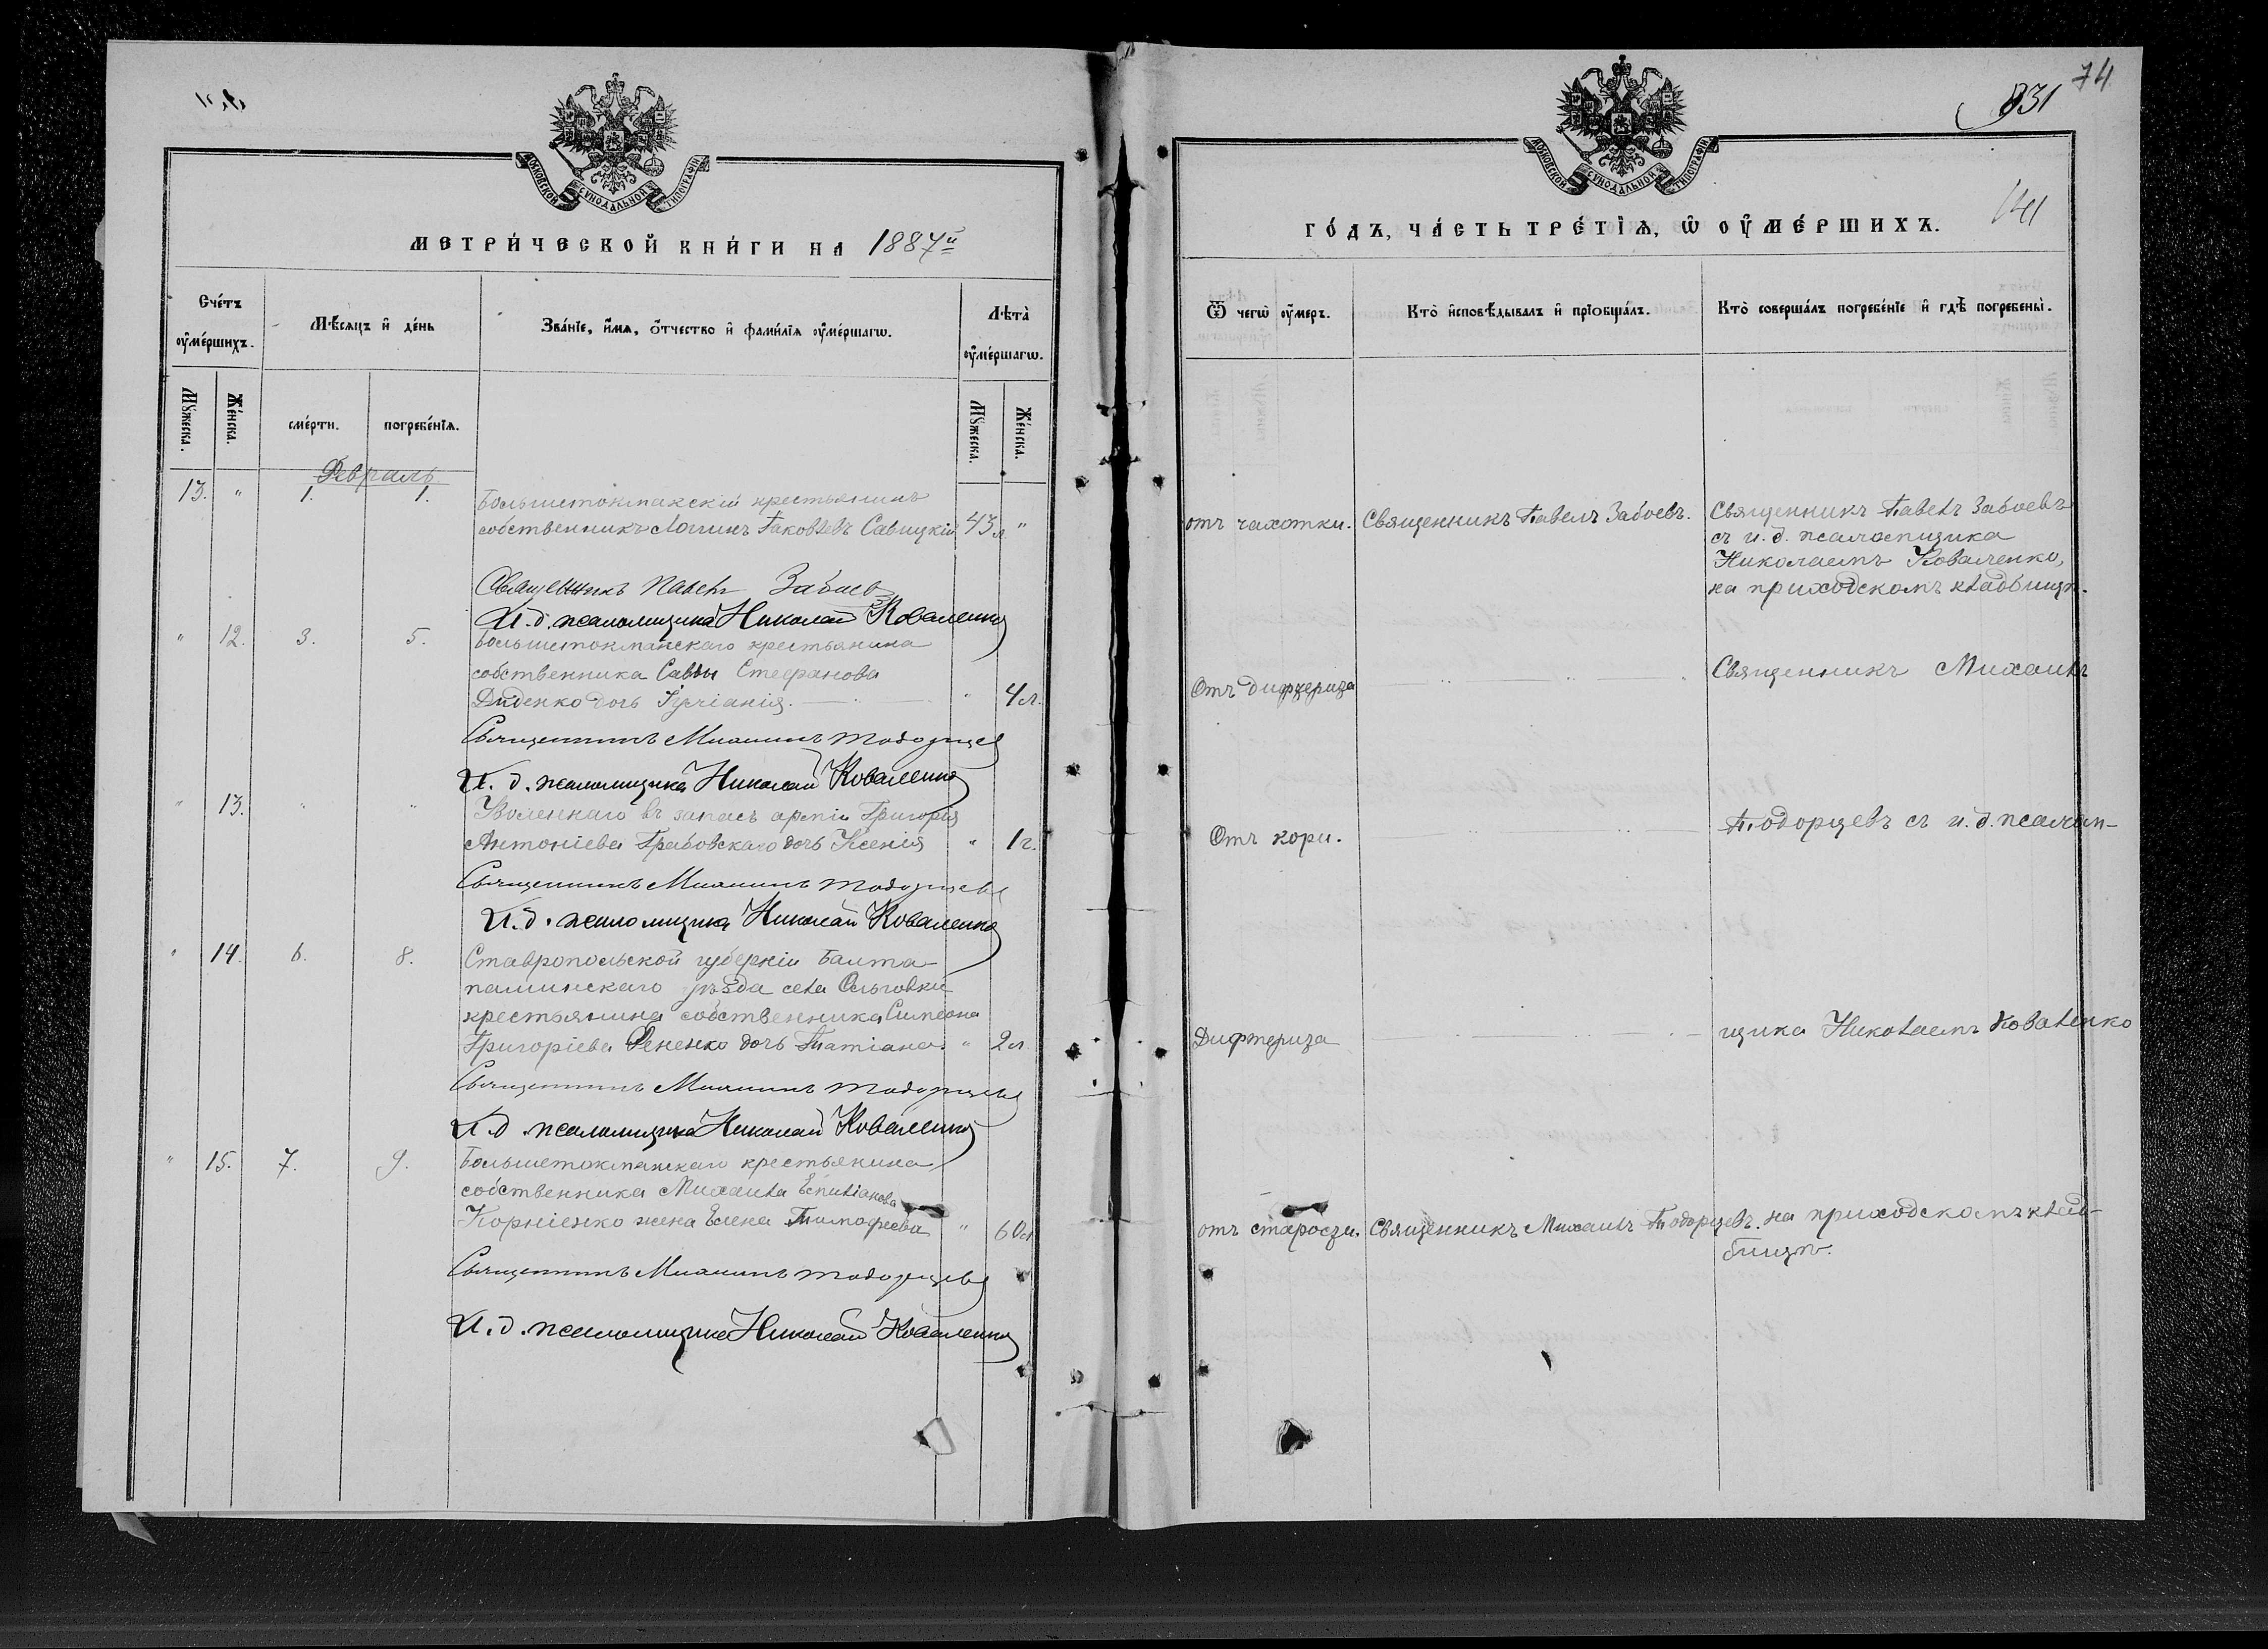 МОСКОВСКОЙ СѴНОДАЛЬНОЙ ТИПОГРАФІИ
МЕТРИ́ЧЕСКОЙ КНИ́ГИ НА 1887й
Сче́тъ ᲂу҆ме́ршихъ.
Мѣ́сяцъ и҆ де́нь
Зва́нїе, и҆́мѧ, ѻ҆́тчество и҆ фами́лїѧ ᲂу҆ме́ршагѡ.
Лѣта̀ ᲂу҆ме́ршагѡ.
Мꙋ́жеска.
Же́нска.
сме́рти.
погребе́нїѧ.
Мꙋ́жеска.
Же́нска.
Февраль
13. " 1. 1. Большетокмакскій крестьянинъ
собственникъ Логинъ Іаковлевъ Савицкій 43 л "
Священникъ Павелъ Забоев
И. д. псаломщика Николай Коваленко
" 12. 3. 5. Большетокмакскаго крестьянина
собственника Саввы Стефанова
Диденко дочь Іуліанія. " 4 л.
Священникъ Михаилъ Тодорцев
И. д. псаломщика Николай Коваленко
" 13. " " Уволеннаго въ запасъ арміи Григорія
Антоніева Грабовскаго дочь Ксенія " 1 г.
Священникъ Михаилъ Тодорцевъ
И. д. псаломщика Николай Коваленко
" 14. 6. 8. Ставропольской губерніи Балта-
пашинскаго уѣзда села Ольговки
крестьянина собственника Симеона
Григоріева Фененко дочь Татіана. " 2 л.
Священникъ Михаилъ Тодорцевъ
И. д. псаломщика Николай Коваленко
" 15. 7. 9. Большетокмакскаго крестьянина
собственника Михаила Емиліанова
Корніенко жена Елена Тимофеева " 60 л
Священникъ Михаилъ Тодорцевъ
И. д. псаломщика Николай Коваленко
74
831
141
МОСКОВСКОЙ СѴНОДАЛЬНОЙ ТИПОГРАФІИ
ГО́ДЪ, ЧА́СТЬ ТРЕ́ТЇѦ, Ѡ҆ ОУ҆МЕ́РШИХЪ.
Ѿ чегѡ̀ ᲂу҆́меръ.
Кто̀ и҆сповѣ́дывалъ и҆ прїобща́лъ.
Кто̀ соверша́лъ погребе́нїе и҆ гдѣ̀ погребены̀.
отъ чахотки. Священникъ Павелъ Забоевъ. Священникъ Павелъ Забоевъ
съ и. д. псаломщика
Николаемъ Коваленко,
на приходскомъ кладбищѣ.
Отъ дифтерита Священникъ Михаилъ
Отъ кори. Тодорцевъ съ и. д. псалом-
Дифтерита щика Николаемъ Коваленко
отъ старости. Священникъ Михаилъ Тодорцевъ. на приходскомъ клад-
бищѣ.